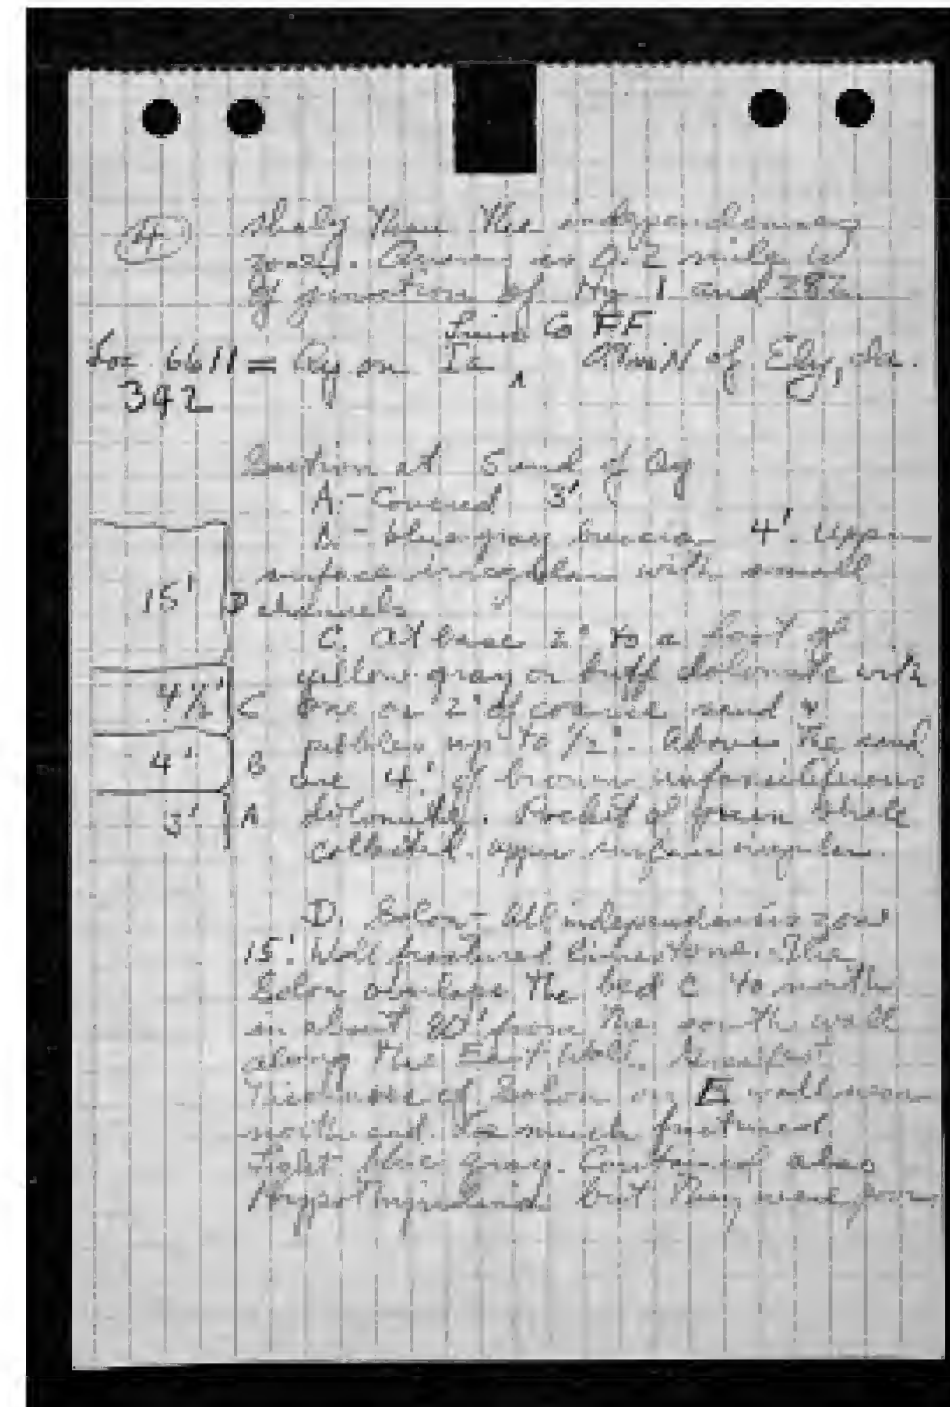 4
shaly than the independensis
zone. Quarry is 0.2 mile W
of junction of Hy 1 and 382.
Linn Co FF
Loc 6611 = Qy on Ia ^ N of Ely, Ia.
342
Section at S end of Qy
A. - Covered 3'
B. - blue gray breccia 4'. Upper
surface irregular with small
15' D channels
C. At base 2" to a foot of
yellow-gray or buff dolomite with
4 1/2' C one or 2" of coarse sand &
pebbles up to 1/2". Above the sand
4' B are 4' of brown unfossiliferous
3' A dolomite. Pocket of green shale
collected. Upper surface irregular.
D. Solon - All independensis zone
15'. Well fractured limestone. The
Solon overlaps the bed C to north
in about 20' from the south wall
along the East Wall. Greatest
Thickness of Solon on E wall near
north end. Too much fractured.
Light blue gray. Contained also
but they were poor.